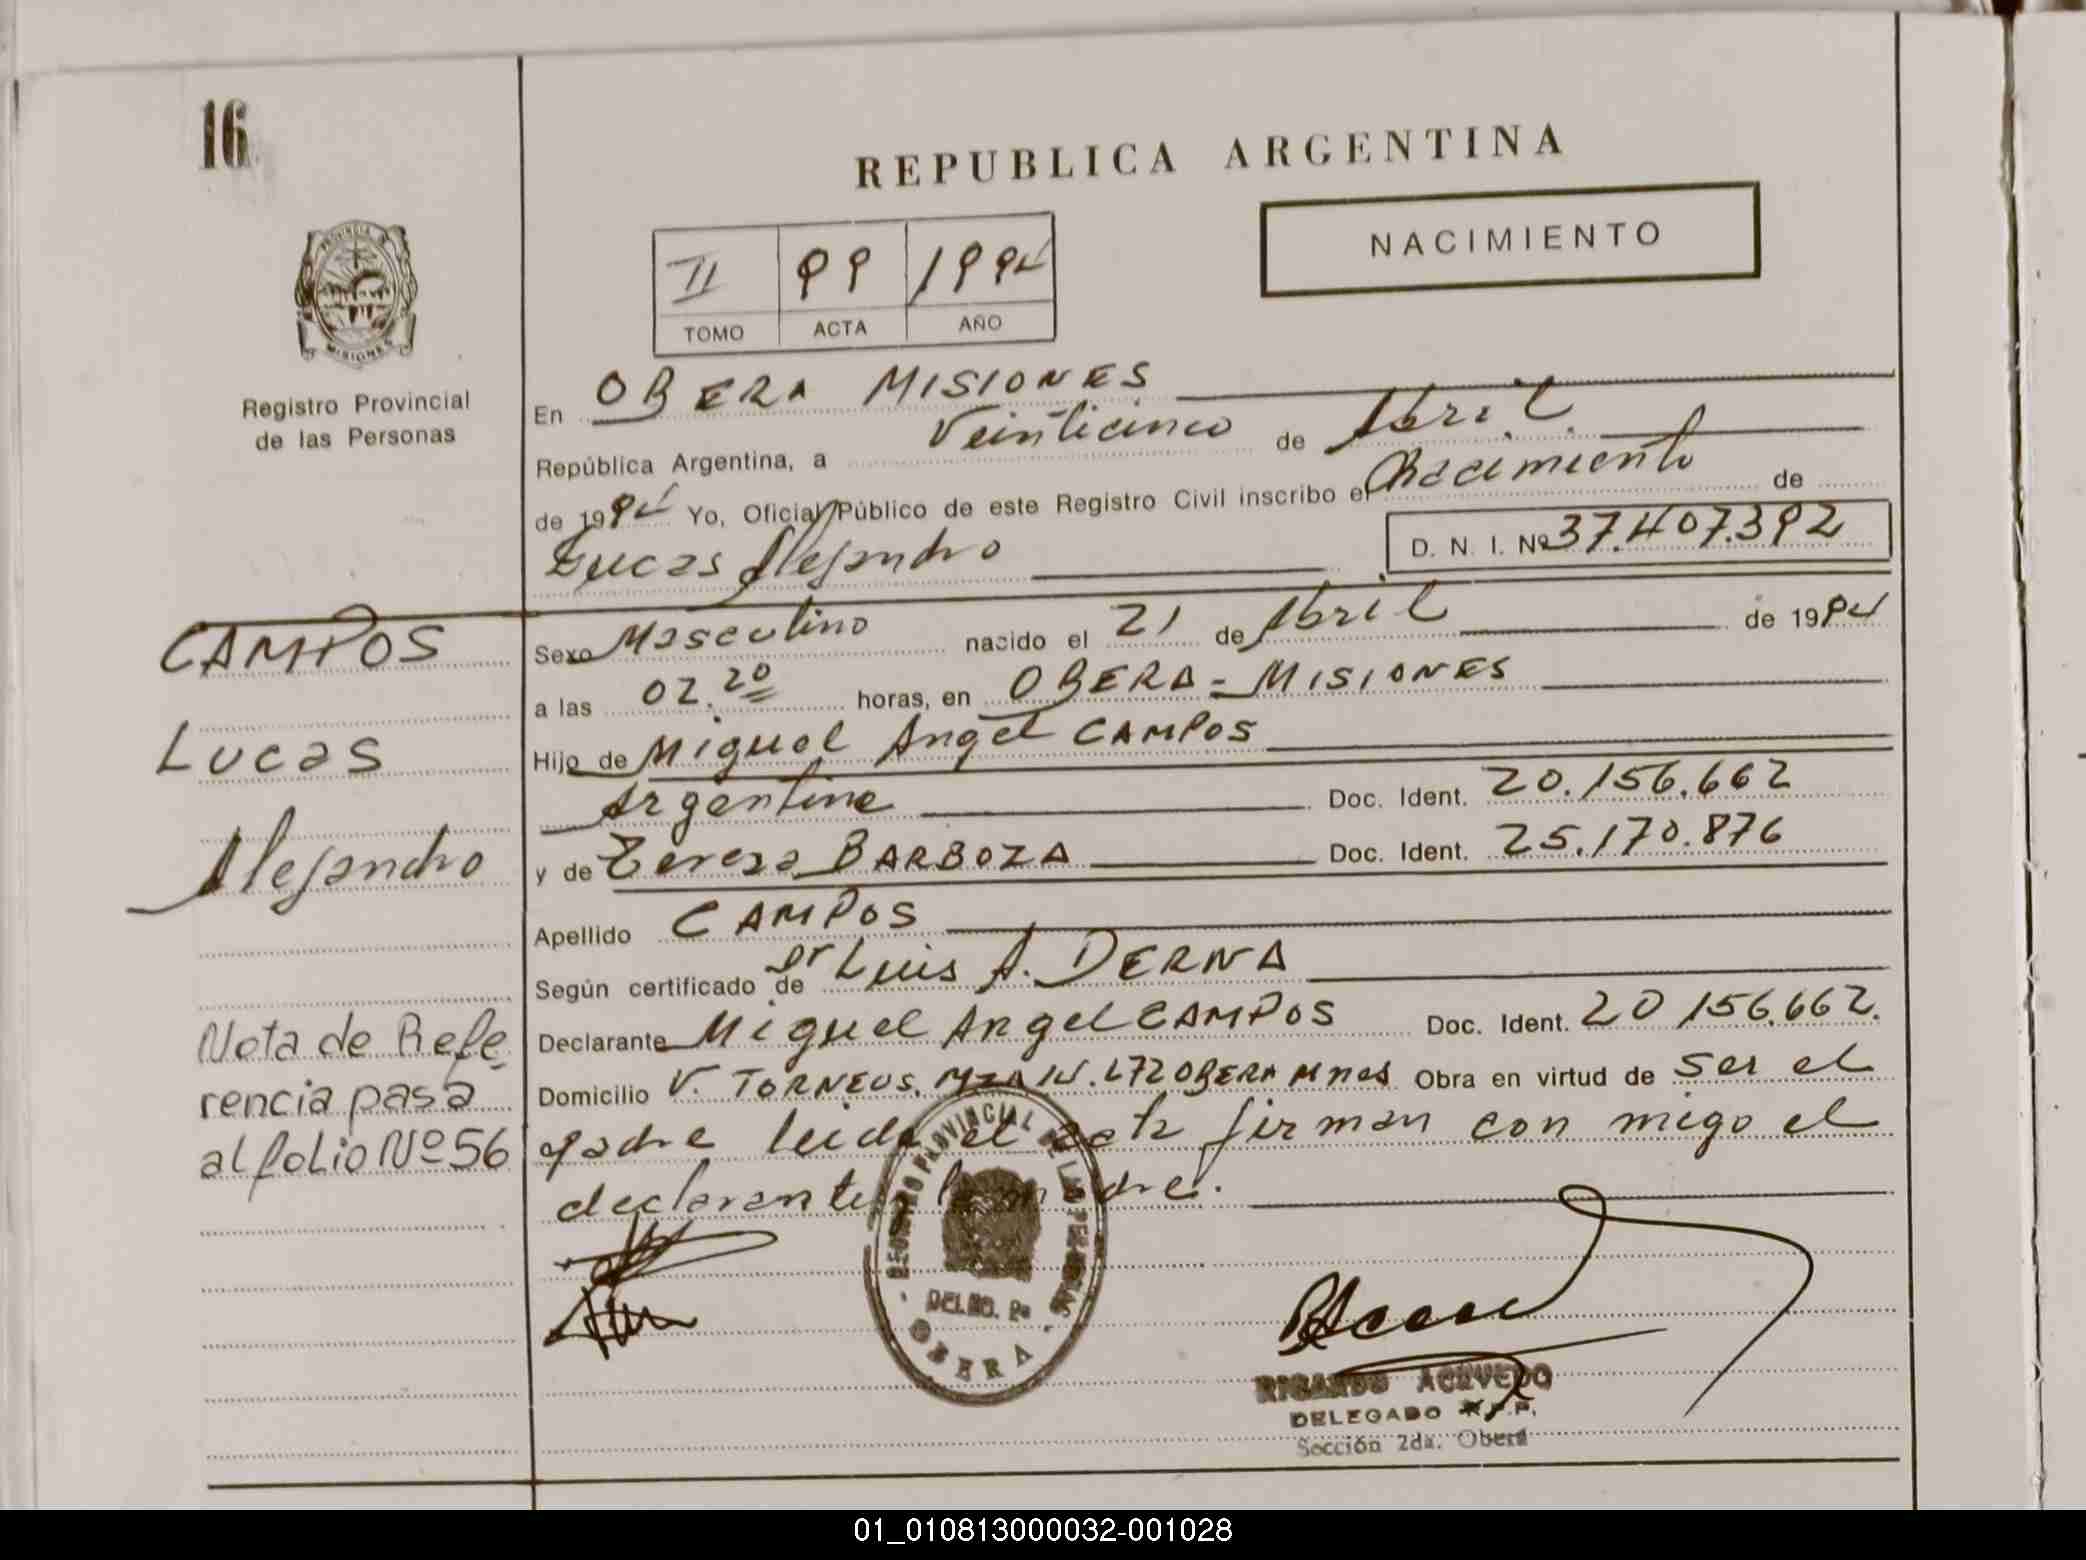 16
REPUBLICA ARGENTINA
NACIMIENTO
II 99 1994
TOMO ACTA AÑO
PROVINCIA DE
MISIONES
Registro Provincial
de las Personas
En OBERA MISIONES
República Argentina, a Veinticinco de Abril.
de 1994 Yo, Oficial Público de este Registro Civil inscribo el Nacimiento de
Lucas Alejandro D. N. I. Nº 37.407.392
CAMPOS
Lucas
Alejandro
Sexo Masculino nacido el 21 de Abril de 1994
a las 02.20 horas, en OBERA - MISIONES
Hijo de Miguel Angel CAMPOS
Argentino Doc. Ident. 20.156.662
y de Teresa BARBOZA Doc. Ident. 25.170.876
Apellido CAMPOS
Según certificado de Dr Luis A. DERNA
Declarante Miguel Angel CAMPOS Doc. Ident. 20 156.662.
Domicilio V. TORNEUS. MZA OBERA Mnes Obra en virtud de ser el
padre leida el acta firman con migo el
declarante y la madre.
Nota de Refe
rencia pasa
al folio Nº 56
REGISTRO PROVINCIAL DE LAS PERSONAS
DELEG. 2ª
OBERA
RICARDO ACEVEDO
DELEGADO R.P.P.
Sección 2da. Oberá
01_010813000032-001028